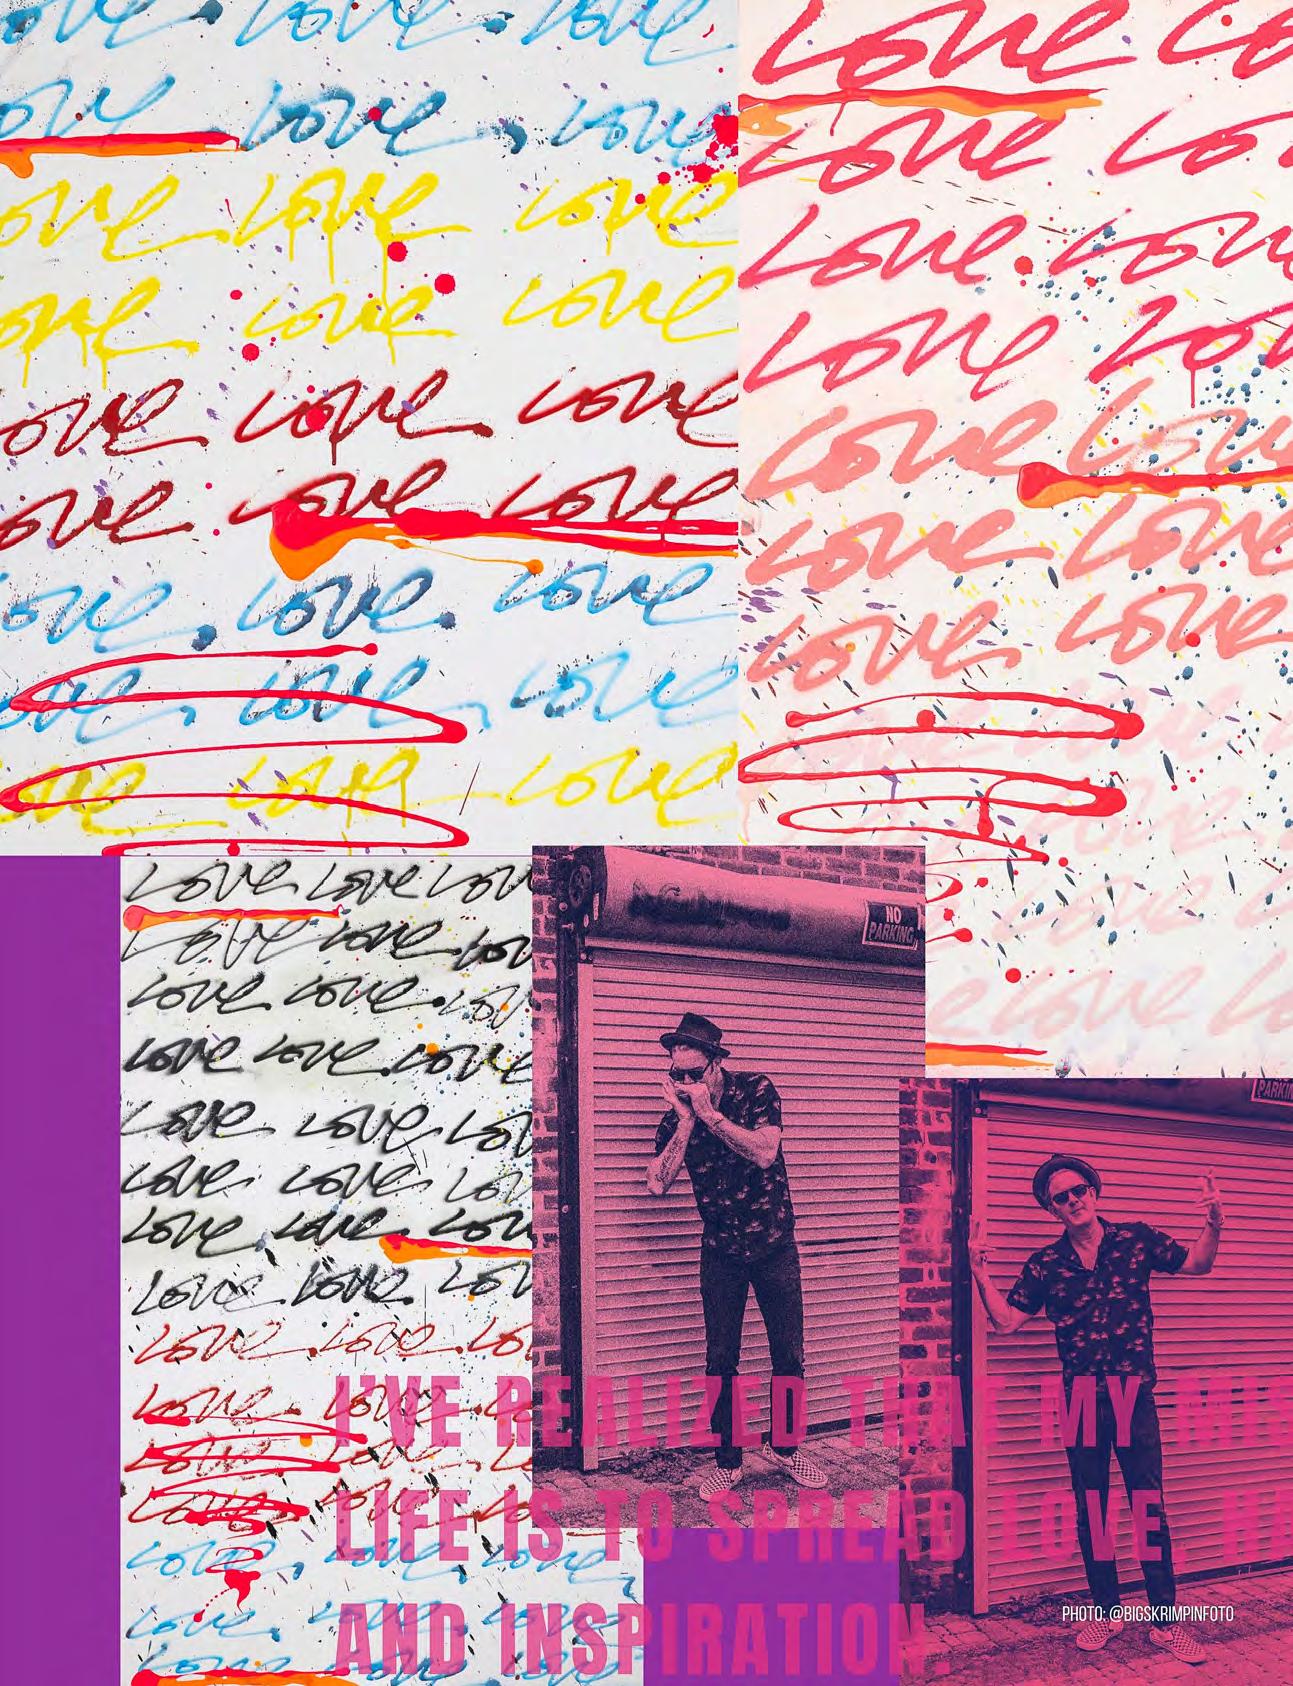 love. love. love
love love, love
love love. love
love love love
love love. love
love love love
love, love. love
love, love, love
love love love
Love Lo
Love Lo
Love. Love
Love Lo
Love Love
Love Love
Love Love
Love
Love
Love Lo
LOVE LOVE LOV
LOVE LOVE LOV
Love Love. Lov
Love Love. Love
Love Love, Lov
Love Love, Lov
Love Love Lov
Love Love. Lov
Love. Love. Lo
Love Love. Lo
Love Love Lo
Love Love Lo
Love, Love, Love,
Love, Love, Love
Love Love Love
NO
PARKING
PARKIN
I'VE REALIZED THAT MY MI
LIFE IS TO SPREAD LOVE, H
AND INSPIRATION.
PHOTO: @BIGSKRIMPINFOTO